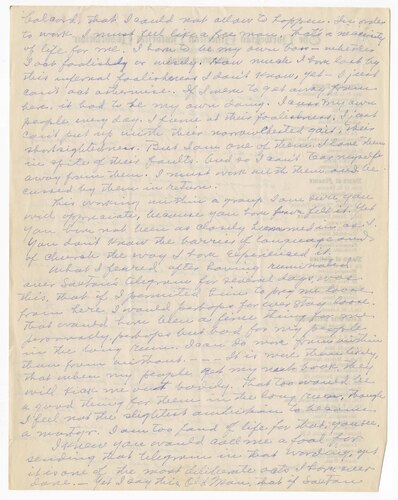 that I could not allow to happen. In order
to work I must feel like a free man — that's a necessity
of life for me. I have to be my own boss — whether
I act foolishly or wisely. How much I have lost by
this infernal foolishness I don't know, yet — I just
can't act otherwise. If I were to get away from
here, it had to be my own doing. I curse my own
people every day. I fume at their foolishness, I just
can't put up with their narrowchested gait, their
shortsightedness. But I am one of them. I love them
in spite of their faults. And so I can't tear myself
away from them. I must work with them and be
cussed by them in return.
This working within a group I am sure you
will appreciate, because you have felt it. But
you have not been as closely hemmed in as I.
You don't know the barriers of language and
of Church the way I have experienced it.
What I feared after having ruminated
over telegram for several days was
this, that if I permitted him to pry me loose
from here I would perhaps forever stay loose.
That would have been a fine thing for me
personally, perhaps but bad for my people
in the long run. I can do more from within
than from without. — It is most likely
that when my people get my next book, they
will kick me out bodily. That too would be
a good thing for them in the long run, though
I feel not the slightest ambition to become
a martyr. I am too fond of life for that, you see.
I knew you would call me a fool for
sending that telegram in that wording, yet
it is one of the most deliberate acts I have ever
done. — Yet I say this Old Man, that if